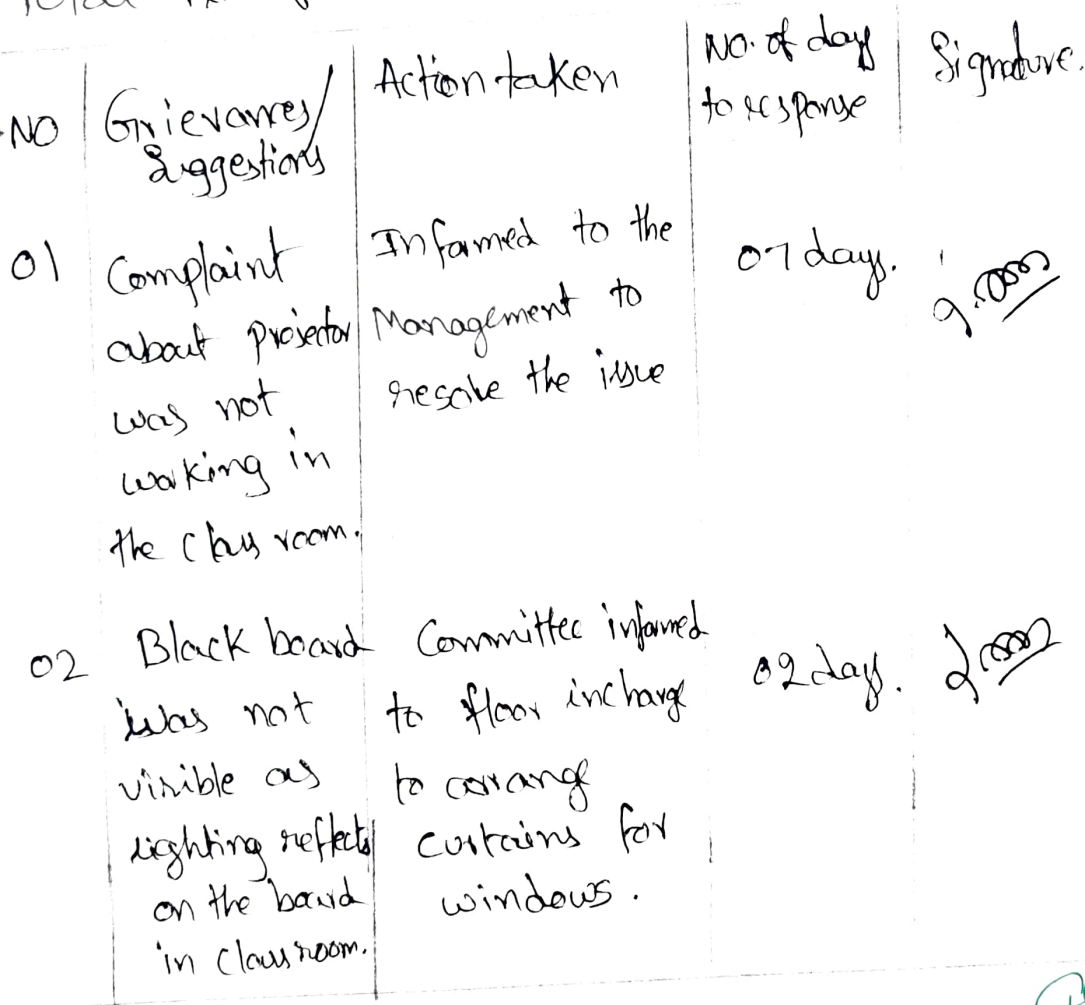 Total
NO
Grievances/
Suggestions
Action taken
No. of days
to response
Signature.
01
Complaint
about projector
was not
working in
the class room.
Informed to the
Management to
resolve the issue
07 days.
02
Black board
was not
visible as
lighting reflects
on the board
in classroom.
Committee informed
to floor incharge
to arrange
curtains for
windows.
02 days.